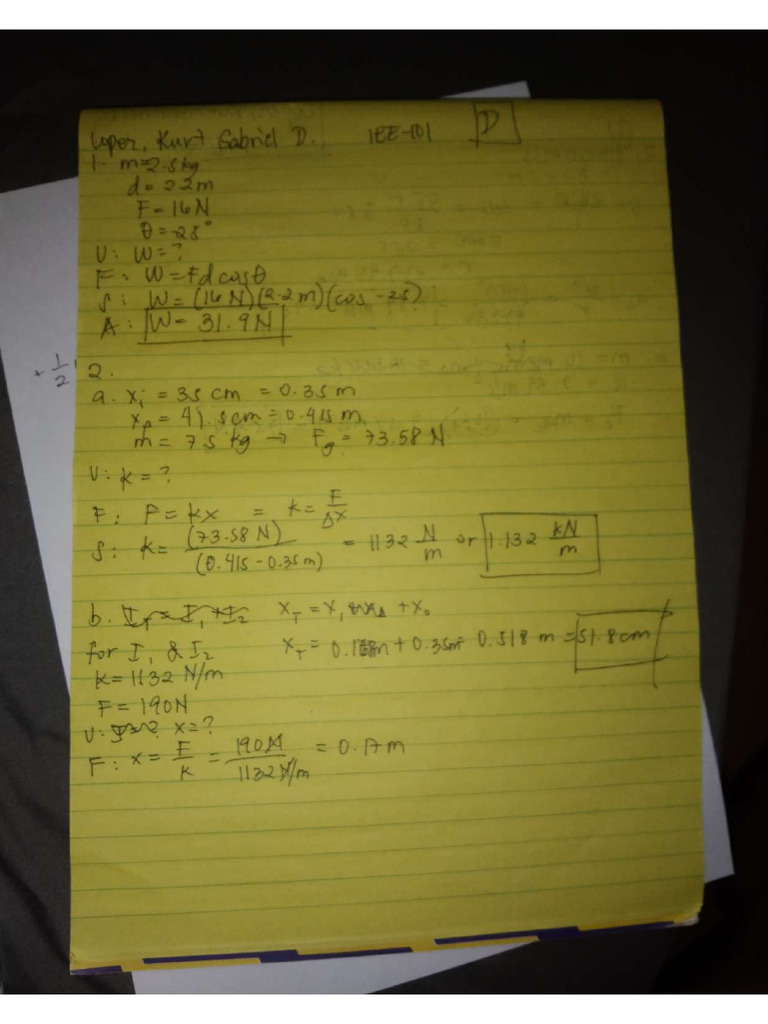 Loper, Kurt Gabriel D. 1EE-101 D
1. m=2.5kg
d= 2.2m
F= 16N
θ=-25°
U: W=?
F: W=Fd cosθ
S: W= (16N)(2.2m)(cos -25)
A: W= 31.9N
2.
a. xi = 35 cm = 0.35 m
xf = 41.5cm = 0.415 m
m= 7.5 kg → Fg = 73.58 N
U: k= ?
F: F= kx = k= F/Δx
S: K= (73.58 N)/(0.415-0.35m) = 1132 N/m or 1.132 kN/m
b. xT = x1 + x0
for I1 & I2 xT= + 0.35m= 0.518 m = 51.8cm
K=1132 N/m
F= 190N
U: x=?
F: x= F/K = 190N/1132N/m = 0.17m
+ 1/2